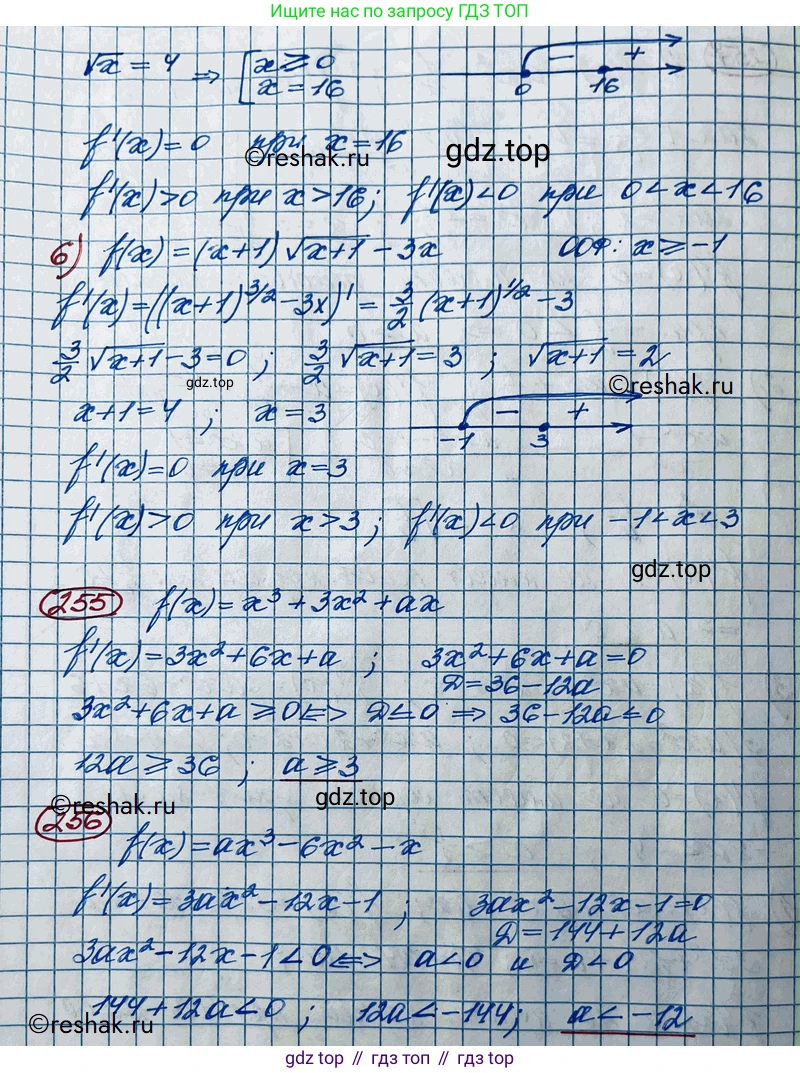 Ищите нас по запросу ГДЗ ТОП
√x = 4 ⇒ [ x ≥ 0
x = 16
0 − 16 +
f'(x) = 0 при x = 16
©reshak.ru gdz.top
f'(x) > 0 при x > 16; f'(x) < 0 при 0 < x < 16
6) f(x) = (x+1)√x+1 − 3x ООФ: x ≥ −1
f'(x) = ((x+1)^3/2 − 3x)' = 3/2 (x+1)^1/2 − 3
3/2 √x+1 − 3 = 0 ; 3/2 √x+1 = 3 ; √x+1 = 2
gdz.top ©reshak.ru
x+1 = 4 ; x = 3
−1 − 3 +
f'(x) = 0 при x = 3
f'(x) > 0 при x > 3 ; f'(x) < 0 при −1 < x < 3
gdz.top
255 f(x) = x³ + 3x² + ax
f'(x) = 3x² + 6x + a ; 3x² + 6x + a = 0
D = 36 − 12a
3x² + 6x + a ≥ 0 ⇔ D ≤ 0 ⇒ 36 − 12a ≤ 0
12a ≥ 36 ; a ≥ 3
©reshak.ru gdz.top
256 f(x) = ax³ − 6x² − x
f'(x) = 3ax² − 12x − 1 ; 3ax² − 12x − 1 = 0
D = 144 + 12a
3ax² − 12x − 1 < 0 ⇔ a < 0 и D < 0
144 + 12a < 0 ; 12a < −144 ; a < −12
©reshak.ru ©reshak.ru
gdz top // гдз топ // gdz top // гдз топ